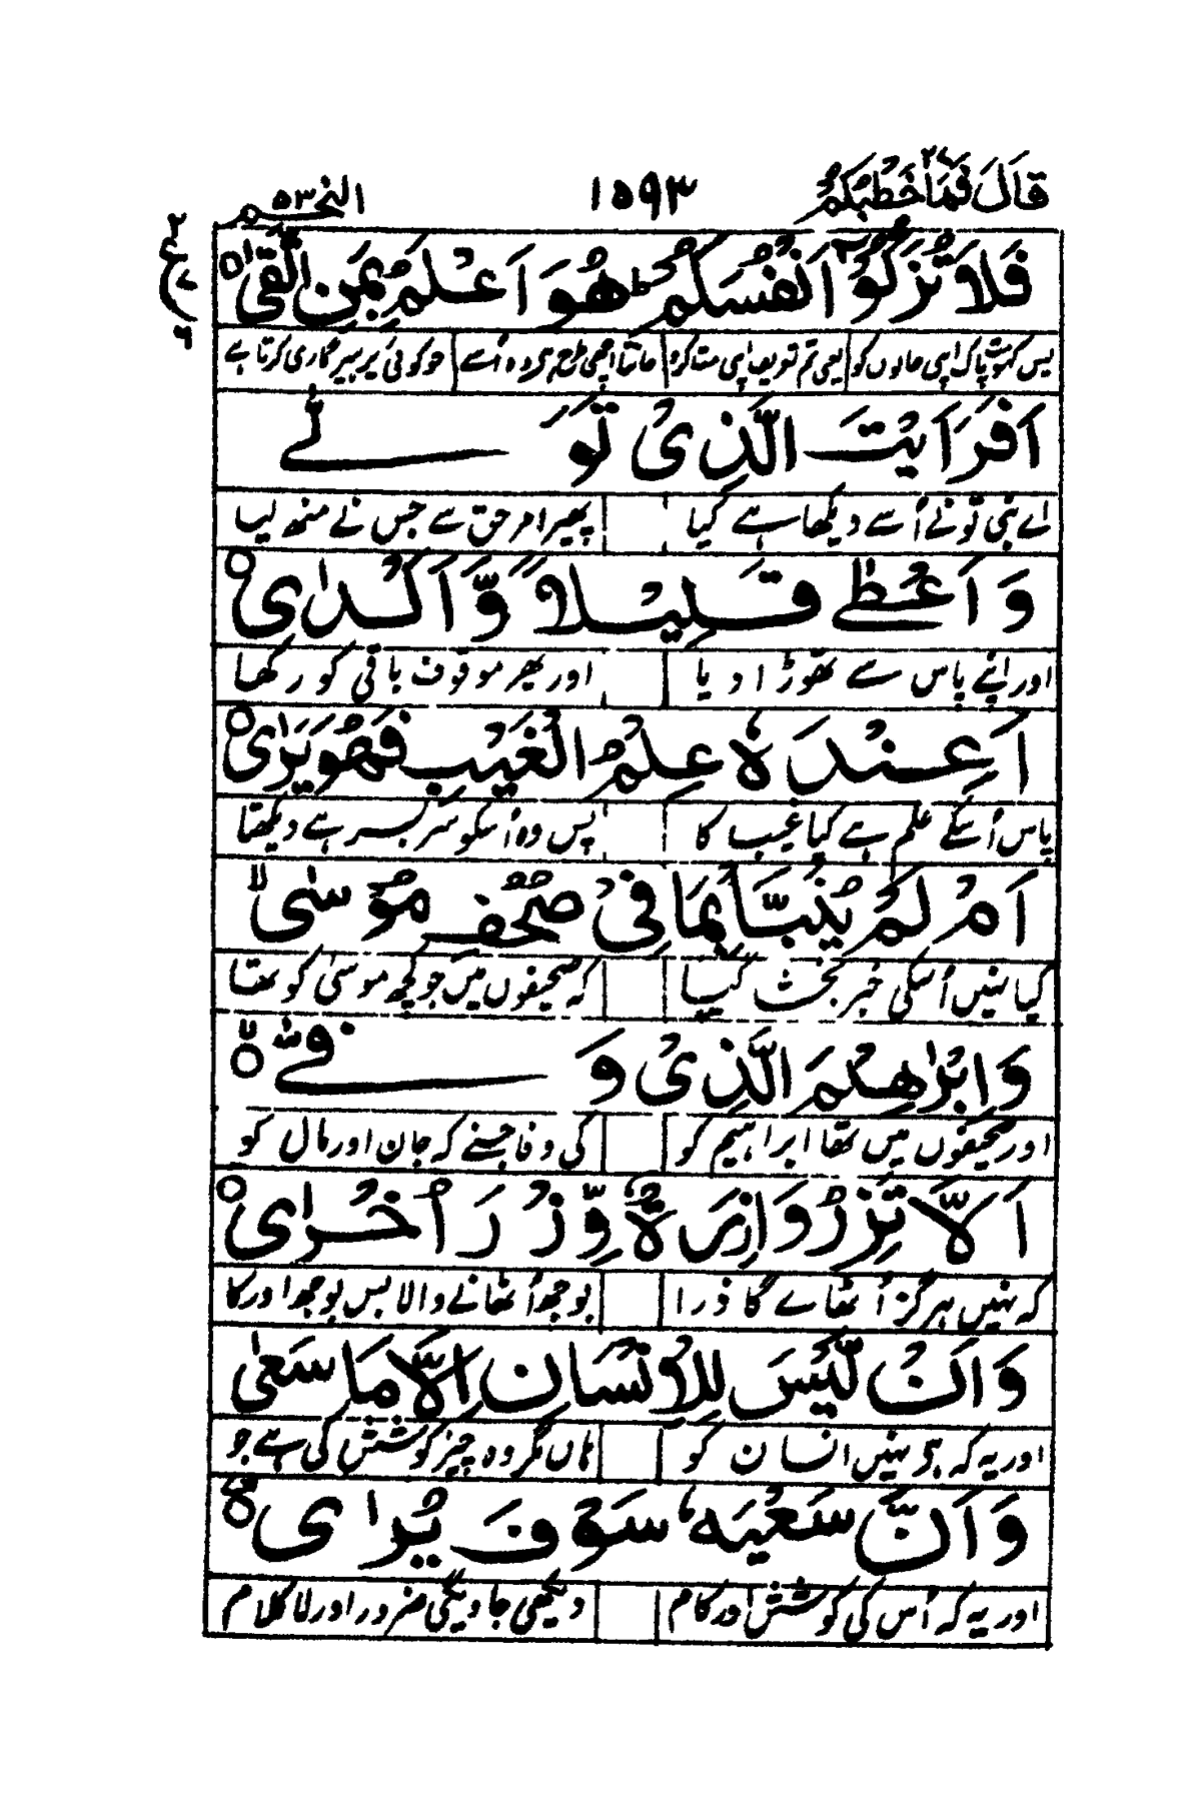 قَالَ فَمَا خَطْبُكُمْ ٢٧ ١٥٩٣ النجم ٥٣
فَلَا تُزَكُّوْٓا اَنْفُسَكُمْ ؕ هُوَ اَعْلَمُ بِمَنِ اتَّقٰى
پس کہو مت پاک اپنی جانوں کو یعنی تم تعریف اپنی مت کرو جانتا اچھی طرح ہی وہ اُسے جو کوئی پرہیزگاری کرتا ہے
اَفَرَاَيْتَ الَّذِىْ تَوَلّٰے
اے نبی تو نے اُسے دیکھا ہے کیا پھیرا امر حق سے جس نے منھ لیا
وَ اَعْطٰے قَلِيْلًا وَّ اَكْدٰى
اور اپنے پاس سے تھوڑا دیا اور پھر موقوف باقی کو رکھا
اَعِنْدَهٗ عِلْمُ الْغَيْبِ فَهُوَ يَرٰى
پاس اُسکے علم ہے کیا غیب کا پس وہ اُسکو سر بسر ہے دیکھتا
اَمْ لَمْ يُنَبَّاْ بِمَا فِىْ صُحُفِ مُوْسٰى
کیا نہیں اُسکی خبر بخش گیا کہ صحیفوں میں جو کچھ موسیٰ کو تھا
وَ اِبْرٰهِيْمَ الَّذِىْ وَفّٰے
اور صحیفوں میں تھا ابراہیم کو کی وفا جسنے کہ جان اور مال کو
اَلَّا تَزِرُ وَازِرَةٌ وِّزْرَ اُخْرٰى
کہ نہیں ہرگز اُٹھاے گا ذرا بوجھ اُٹھانے والا بس بوجھ اور کا
وَ اَنْ لَّيْسَ لِلْاِنْسَانِ اِلَّا مَا سَعٰى
اور یہ کہ ہو نہیں انسان کو ہاں مگر وہ چیز کوشش کی ہے جو
وَ اَنَّ سَعْيَهٗ سَوْفَ يُرٰى
اور یہ کہ اُس کی کوشش اور کام دیکھی جاویگی ضرور اور لا کلام